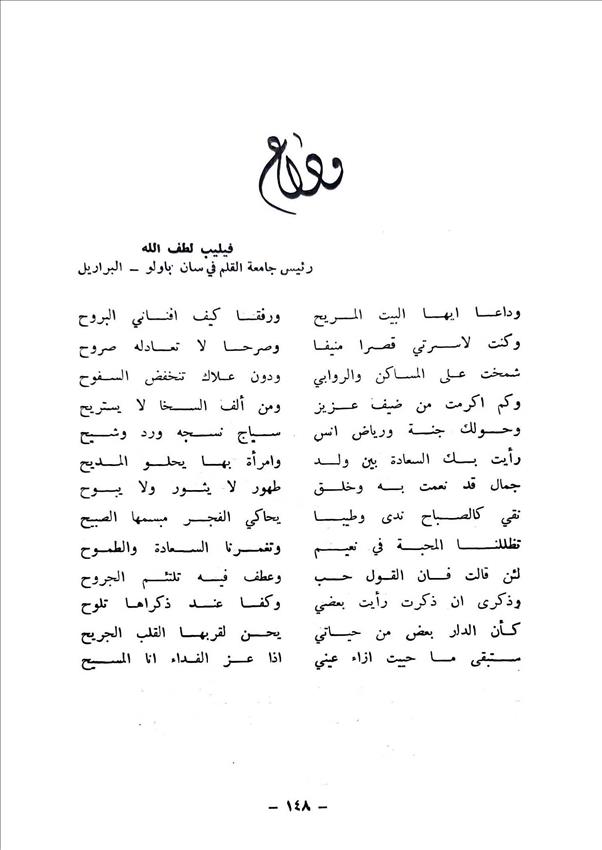 وداع
فيليب لطف الله
رئيس جامعة القلم في سان باولو – البراريل
وداعا ايها البيت المريح ورفقا كيف افناني البروح
وكنت لاسرتي قصرا منيفا وصرحا لا تعادله صروح
شمخت على المساكن والروابي ودون علاك تنخفض السفوح
وكم اكرمت من ضيف عزيز ومن ألف السخا لا يستريح
وحولك جنة ورياض انس سياج نسجه ورد وشيح
رأيت بك السعادة بين ولد وامرأة بها يحلو المديح
جمال قد نعمت به وخلق طهور لا يثور ولا يبوح
نقي كالصباح ندى وطيبا يحاكي الفجر مبسمها الصبيح
تظللنا المحبة في نعيم وتغمرنا السعادة والطموح
لئن قالت فان القول حب وعطف فيه تلتئم الجروح
وذكرى ان ذكرت رأيت بعضي وكفا عند ذكراها تلوح
كأن الدار بعض من حياتي يحن لقربها القلب الجريح
ستبقى ما حييت ازاء عيني اذا عز الفداء انا المسيح
– ١٤٨ –